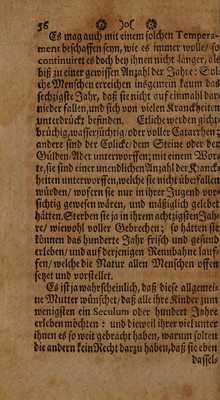 56
Es mag auch mit einem solchen Tempera-
ment beschaffen seyn, wie es immer wolle/ so
continuiret es doch bey ihnen nicht länger, als
biß zu einer gewissen Anzahl der Jahre: Sol-
che Menschen erreichen insgemein kaum das
sechzigste Jahr, daß sie nicht auf einmahl dar-
nieder fallen, und sich von vielen Kranckheiten
unterdrückt befinden. Etliche werden gicht-
brüchig, wassersüchtig/ oder voller Catarrhen;
andere sind der Colicke/ dem Steine oder der
Gülden-Ader unterworffen; mit einem Wor-
te, sie sind einer unendlichen Anzahl der Kranck-
heiten unterworffen, welche sie nicht überfallen
würden/ wofern sie nur in ihrer Jugend vor-
sichtig gewesen wären, und mäßiglich gelebet
hätten. Sterben sie ja in ihrem achtzigsten Jah-
re/ wiewohl voller Gebrechen; so hätten sie
können das hunderte Jahr frisch und gesund
erleben/ und auf derjenigen Rennbahne lauf-
fen/ welche die Natur allen Menschen offen
setzet und vorstellet.
Es ist ja wahrscheinlich, daß diese allgemei-
ne Mutter wünschet/ daß alle ihre Kinder zum
wenigsten ein Seculum oder hundert Jahre
erleben möchten: und dieweil ihrer viel unter
ihnen es so weit gebracht haben, warum solten
die andern kein Recht darzu haben, daß sie eben
dassel-